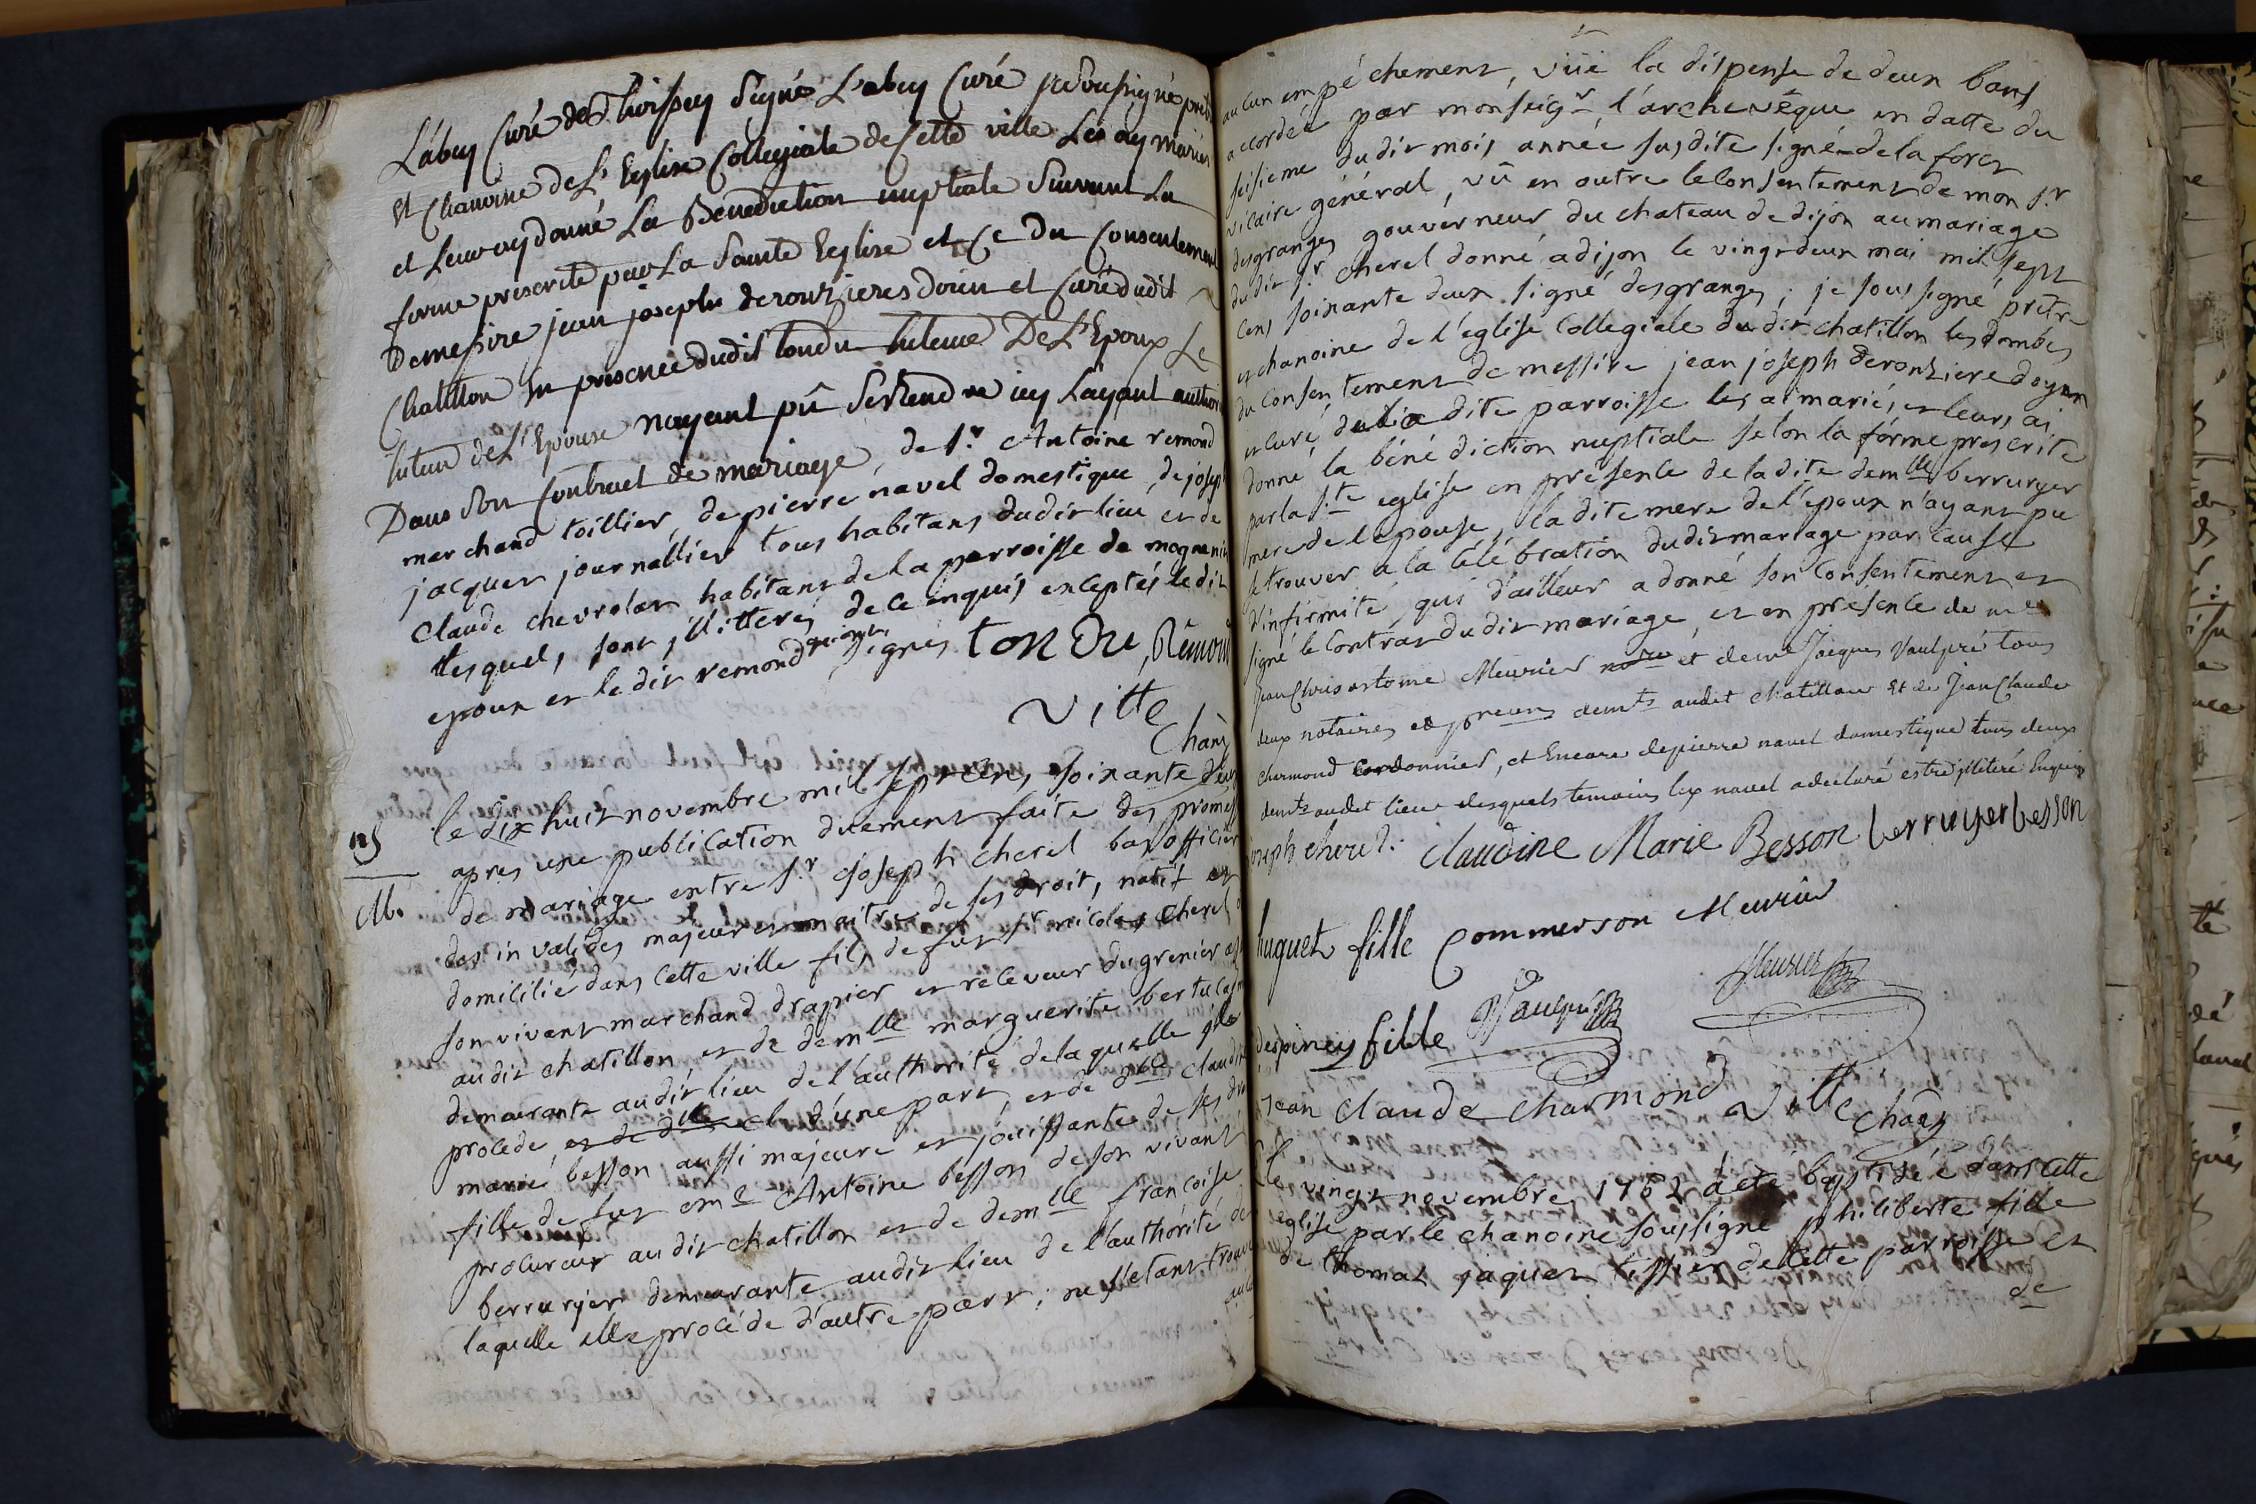 Labuy Curé de Thoissey Signé Labuy Curé je soussigné pretre
et Chanoine de L'Eglise Collegiale de Cette ville Les ay mariés
et Leur ay donné La Bénédiction nuptiale Suivant La
forme prescrite par La Sainte Eglise et Ce Du Consentement
De messire jean joseph derouzieres doien et Curé dudit
Chatillon En presence dudit tondu De L'Epoux Le
tuteur de L'Epouse nayant pû Se Rendre icy Layant authorisé
Dans Son Contract de mariage, de s.r Antoine remond
marchand toillier, de pierre navel domestique, de joseph
jacquet journallier tous habitans dudit lieu et de
Claude chevrolat habitant de la parroisse de
lesquels sont illitterés de ce enquis exceptés ledit
epoux et le dit remond qui ont signes tondu, Rémond
Ville
Chan
115
M.
le dix huit novembre mil sept cens soixante deux
apres une publication duement faite des promesses
de mariage entre s.r joseph cherel bas officier
des invalides majeur et maitre de ses droit, natif et
domicilié dans cette ville fils de fut s.r nicolas cherel
son vivant marchand drapier et receveur du grenier
audit chatillon et de dem.lle marguerite
demeurante audit lieu de l'authorité de laquelle il
procede, et de d.lle cl d'une part, et de d.lle claudine
marie besson, aussi majeure et jouissante de ses droits
fille de fut m.e Antoine besson de son vivant
procureur audit chatillon et de dem.lle francoise
berruyer demeurante audit lieu de l'authorité de
laquelle elle procéde d'autre part; ne s'etant trouvé
aucun
aucun empéchement, vüe la dispense de deux bans
accordée par monseig.r l'archevêque en datte du
seisieme dudit mois année susdite signé de la forest
vicaire général, vû en outre le consentement de mon s.r
desgranges gouverneur du chateau de dijon au mariage
dudit s.r cherel donné a dijon le vingt deux mai mil sept
cens soixante deux signé desgranges; je sous signé prêtre
et chanoine de l'eglise collegiale dudit chatillon les dombes
du consentement de messire jean joseph derouziere doyen
et curé de la dite parroisse les ai mariés et leurs ai
donné la bénédiction nuptiale selon la forme prescrite
par la s.te eglise en présence de la dite dem.lle berruyer
mere de l'epouse, la dite mere de l'epoux n'ayant pu
se trouver a la célébration dudit mariage par cause
d'infirmité, qui d'ailleur a donné son consentement et
signé le contrat dudit mariage, et en presence de m.e
Jean Chrisostome Meurier et de me Jacques Vaulpré tous
deux notaires et demts audit chatillon Et de Jean Claude
charmond cordonnier, et Encore de pierre navel domestique tous deux
demts audit lieu desquels temoins lex navel a declaré estre illiteré Enquis
joseph cherel. Claudine Marie Besson berruyer besson
huguet fille Commerson Meurier
despiney fille Vaulpré Meurier
Jean claude charmond Ville chan
Le vingt novembre 1762 a été baptisée dans cette
eglise par le chanoine soussigné philiberte fille
de thomas jaquet tissier de cette parroisse et
de